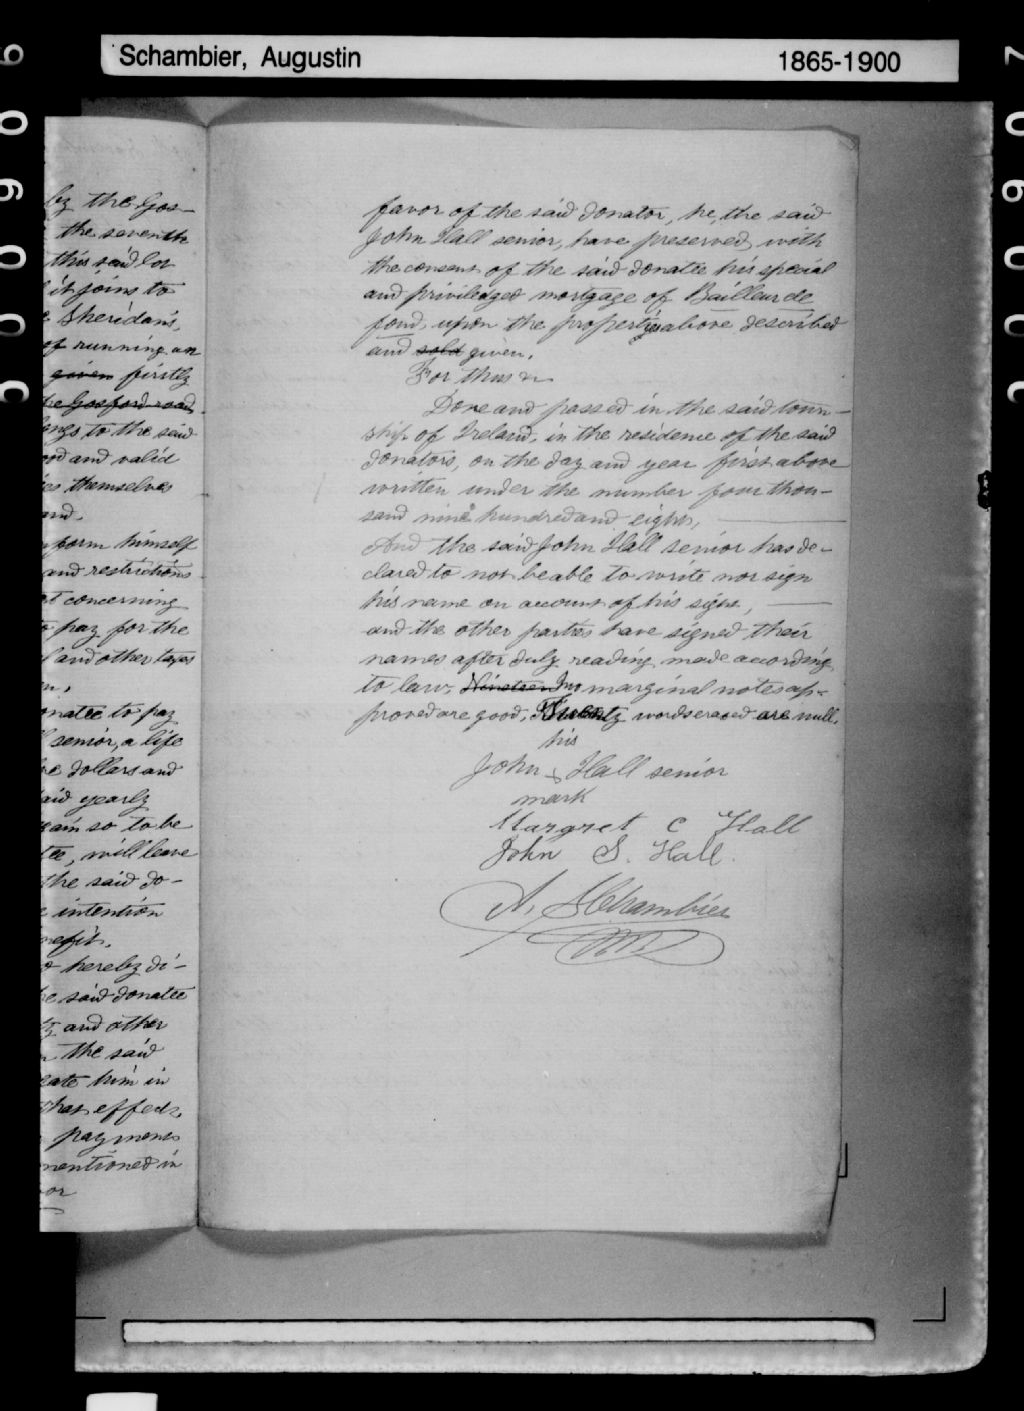 Schambier, Augustin 1865-1900
by the Gos-
the seventh
this said lot
it joins to
Sheridan's,
of running an
given firstly
the Gosford road
ongs to the said
od and valid
themselves
and.
form himself
and restrictions
concerning
to pay for the
and other taxes
onatee to pay
senior, a life
dollars and
aid yearly
so to be
will leave
the said do-
intention
nefit.
hereby di-
said donatee
and other
the said
eate him in
that effect,
payments
mentioned in
or
favor of the said donator, he, the said
John Hall senior, have preserved with
the consent of the said donatee his special
and priviledged mortgage of Bailleur de
fond, upon the properties above described
and sold given.
For thus &
Done and passed in the said town-
ship of Ireland, in the residence of the said
donators, on the day and year first above
written under the number four thou-
sand nine hundred and eight,
And the said John Hall senior has de-
clared to not be able to write nor sign
his name on account of his sight,
and the other parties have signed their
names after duly reading made according
to law, Nineteen Two marginal notes ap-
proved are good, Twenty words erased are null.
his
John x Hall senior
mark
Margret C Hall
John S. Hall.
A. Schambier
N.P.